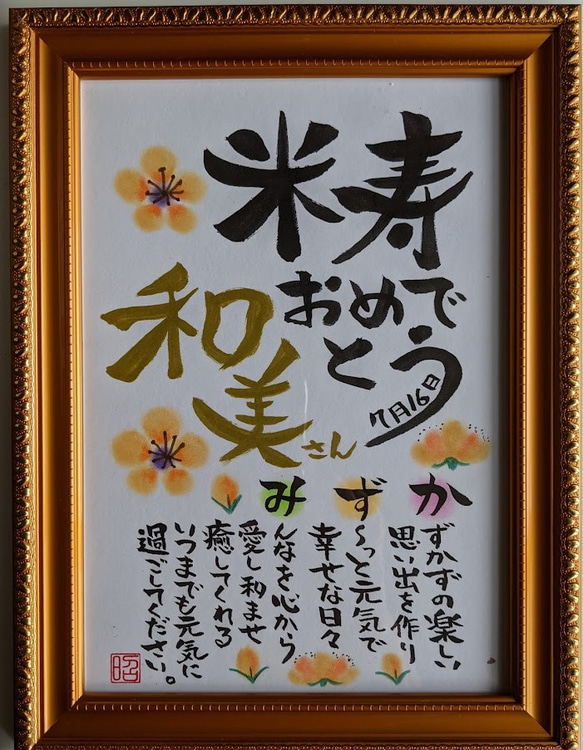 米寿
おめで
とう
7月16日
和
美さん
かずかずの楽しい
思い出を作り
ず〜っと元気で
幸せな日々
みんなを心から
愛し和ませ
癒してくれる
いつまでも元気に
過ごしてください。
昭